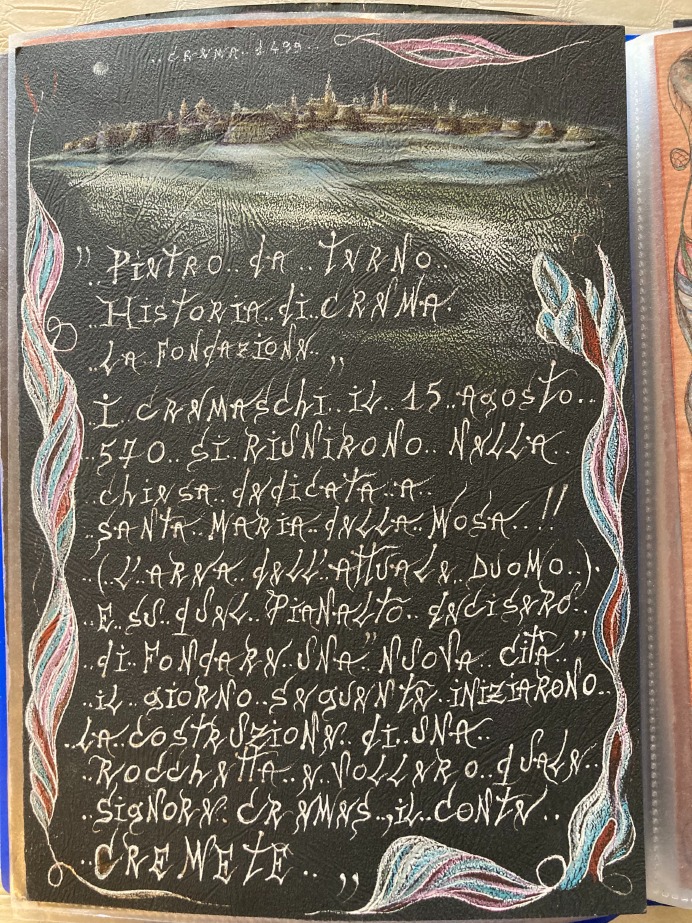 ..CREMA. 1499..
" PIETRO.. da.. TERNO..
..HISTORIA..di..CREMA.
..LA..FONDAZIONE..„
..I..CREMASCHI..IL..15..Agosto..
..570..SI..RIUNIRONO..NELLA..
..chiesa..dedicata..a..
..SANTA..MARIA..della..MOSA..!!
..(L'AREA..dell'ATTUALE..DUOMO..).
..E..SU..quel..PIANALTO..deciserò..
..di..FONDARE..UNA.."NUOVA..CITA"..
..il..giorno..seguente..INIZIARONO..
..LA..COSTRUZIONE..di..UNA..
..ROCCHETTA..e..VOLLERO..quale..
..SIGNORE..CREMES..,il..CONTE..
..CREMETE..„